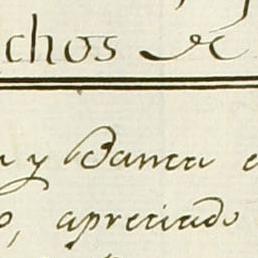 chos &
y Banca
apreciado